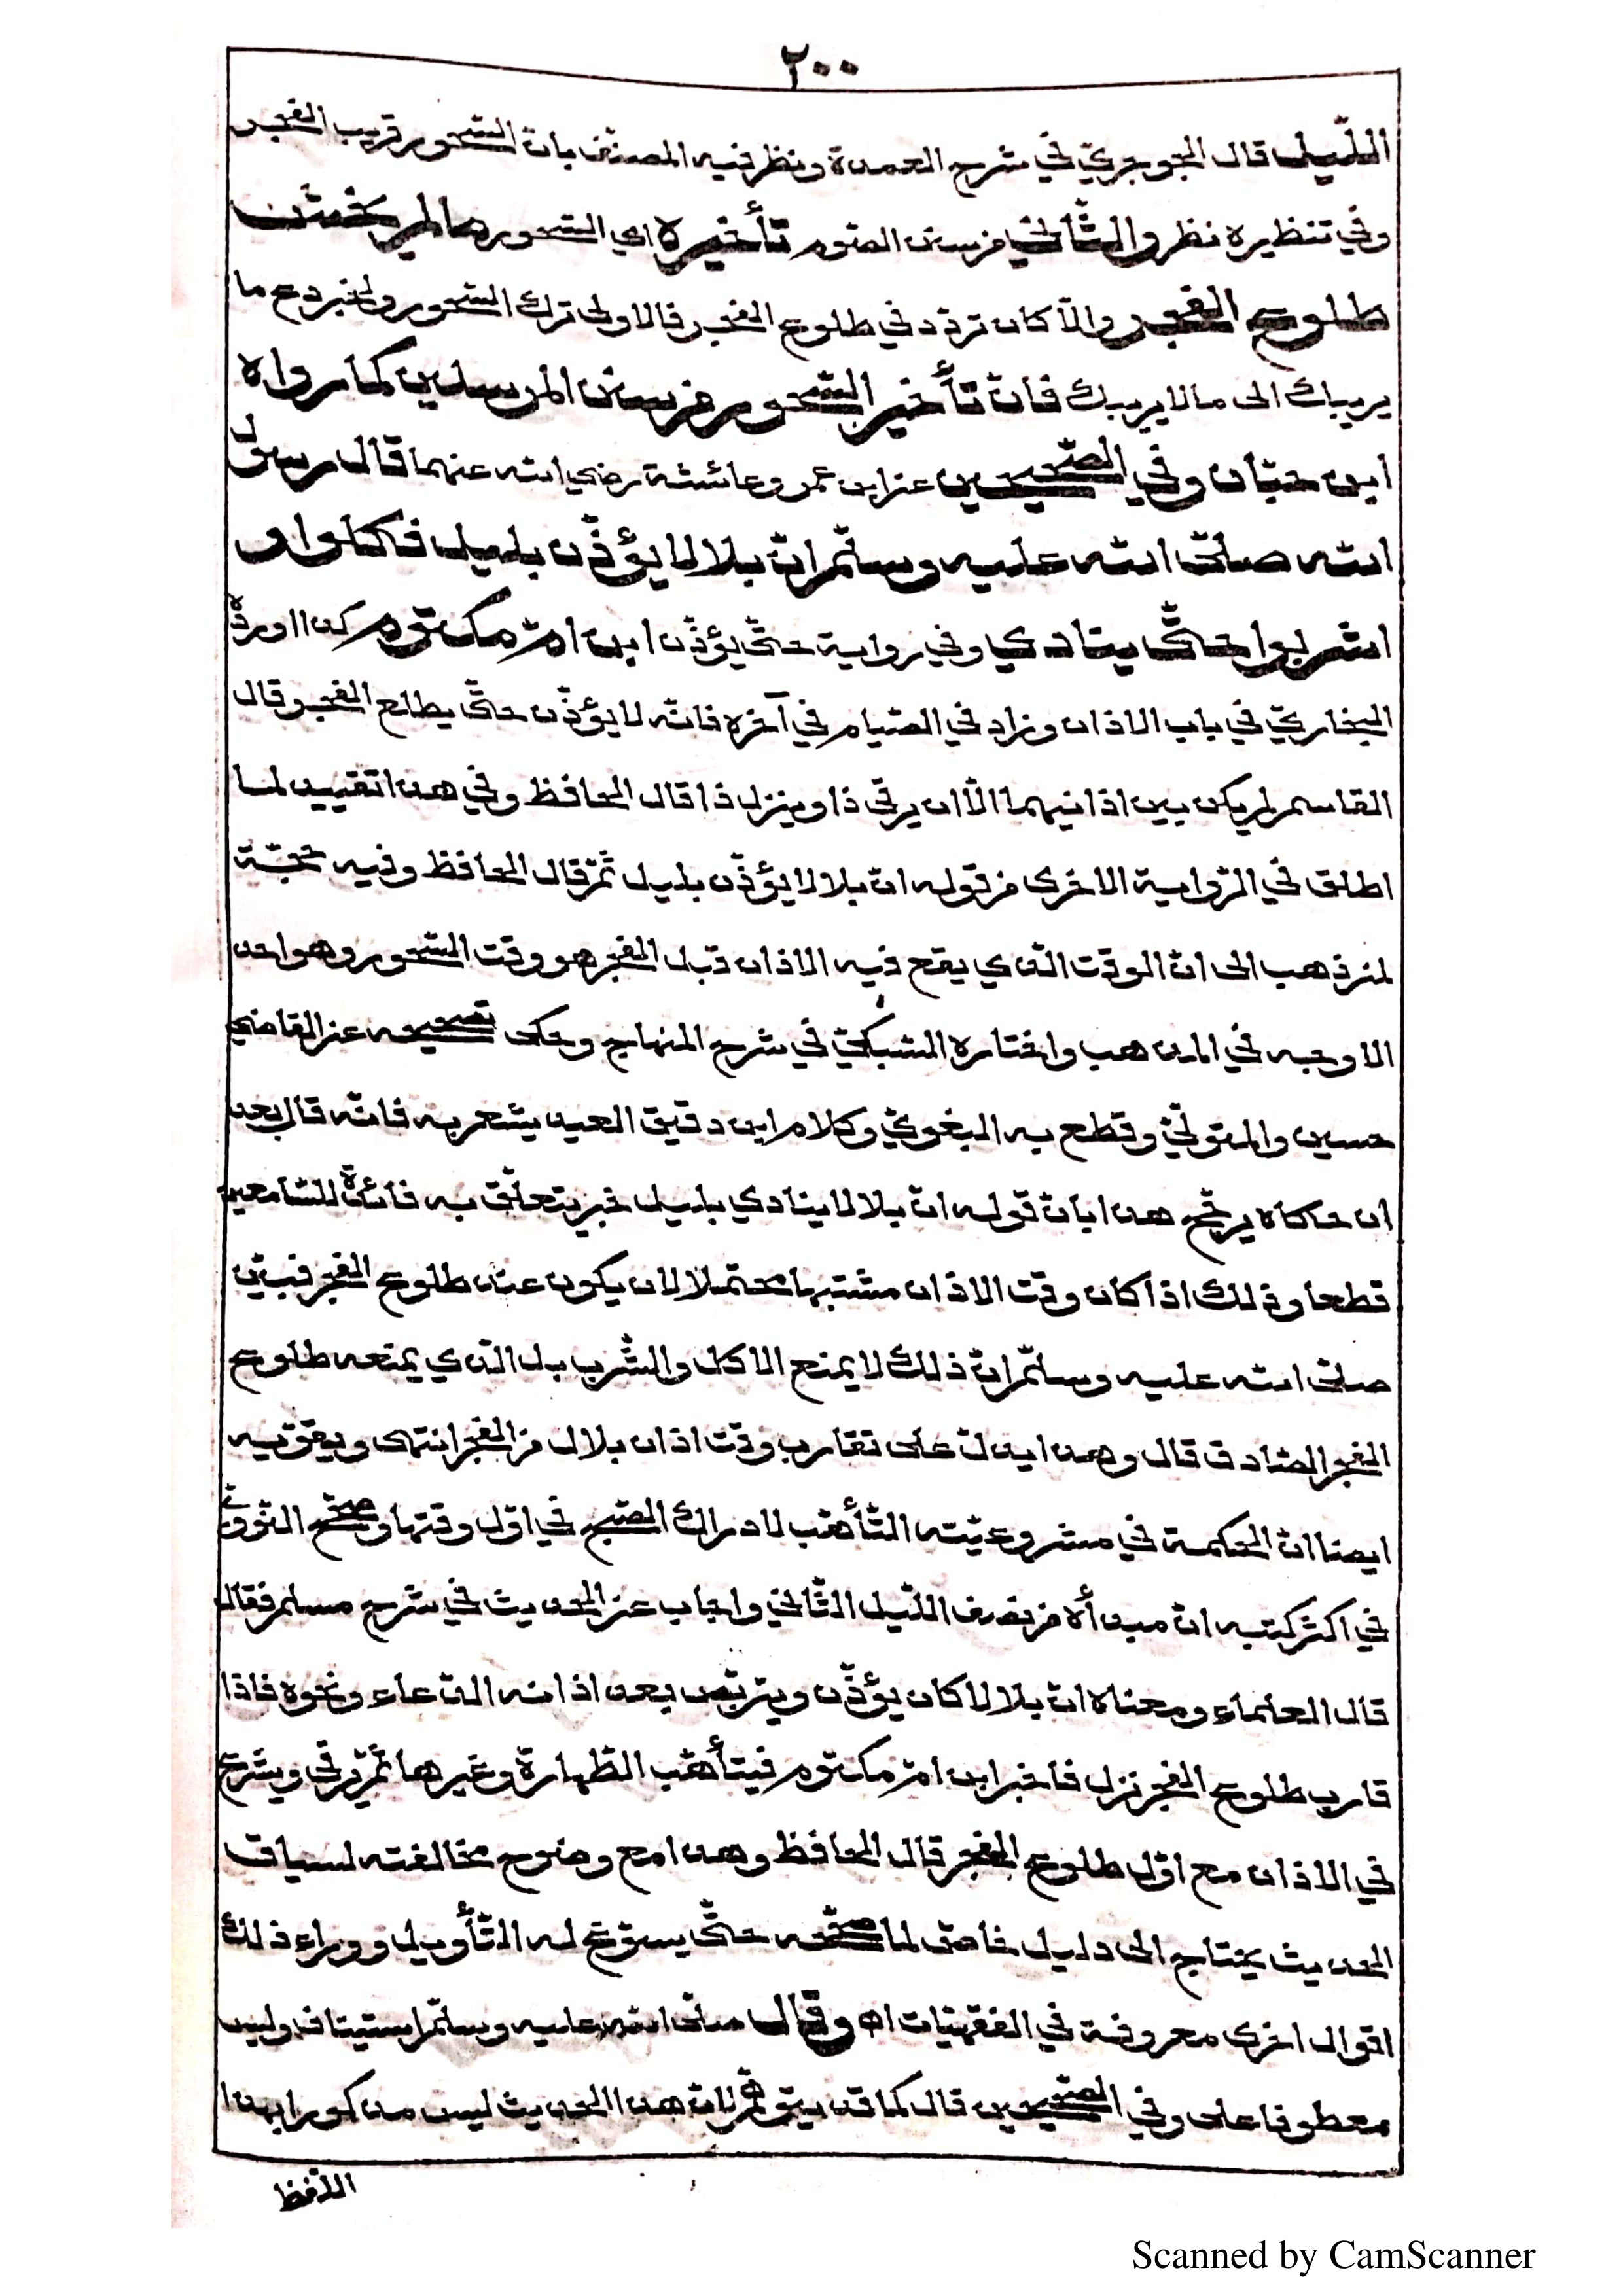 ٢٠٠
اللّيل قال الجوجريّ في شرح العمدة ونظر فيه المصنّف بانّ السّحور قريب الفجر
وفي تنظيره نظر والثّاني من سنن الصّوم تأخيره اي السّحور ما لم يخش
طلوع الفجر والّا كان تردّد في طلوع الفجر فالاولى ترك السّحور ولخبر دع ما
يريبك الى مالا يريبك فانّ تأخير السّحور من سنن المرسلين كما رواه
ابن حبّان وفي الصّحيحين عن ابن عمر وعائشة رضي الله عنهما قال رسول
الله صلّى الله عليه وسلّم انّ بلالا يؤذّن بليل فكلوا و
اشربوا حتّى ينادي وفي رواية حتّى يؤذّن ابن امّ مكتوم كذا اورده
البخاريّ في باب الاذان وزاد في الصّيام في آخره فانّه لا يؤذّن حتّى يطلع الفجر قال
القاسم لم يكن بين اذانيهما الّا ان يرقى ذا وينزل ذا قال الحافظ وفي هذا تقييد لما
اطلق في الرّواية الاخرى من قوله انّ بلالا يؤذّن بليل ثمّ قال الحافظ وفيه حجّة
لمن ذهب الى انّ الوقت الّذي يقع فيه الاذان قبل الفجر هو وقت السّحور وهو احد
الاوجه في المذهب واختاره السّبكيّ في شرح المنهاج وحكى تصحيحه عن القاضي
حسين والمتولّيّ وقطع به البغويّ وكلام ابن دقيق العيد يشعر به فانّه قال بعد
ان حكاه يرجّح هذا بانّ قوله انّ بلالا ينادي بليل خبر يتعلّق به فائدة للسّامعين
قطعا وذلك اذا كان وقت الاذان مشتبها محتملا لان يكون عند طلوع الفجر فبيّن
صلّى الله عليه وسلّم انّ ذلك لا يمنع الاكل والشّرب بل الّذي يمنعه طلوع
الفجر الصّادق قال وهذا يدلّ على تقارب وقت اذان بلال من الفجر انتهى ويقوّيه
ايضا انّ الحكمة في مشروعيّته التّأهّب لادراك الصّبح في اوّل وقتها وصحّح النّوويّ
في اكثر كتبه انّ مبدأه من نصف اللّيل الثّاني واجاب عن الحديث في شرح مسلم فقال
قال العلماء ومعناه انّ بلالا كان يؤذّن ويتربّص بعد اذانه للدّعاء ونحوه فاذا
قارب طلوع الفجر نزل فاخبر ابن امّ مكتوم فيتأهّب الطّهارة وغيرها ثمّ يرقى ويشرع
في الاذان مع اوّل طلوع الفجر قال الحافظ وهذا مع وضوح مخالفته لسياق
الحديث يحتاج الى دليل خاصّ لما صحّحه حتّى يسوّغ له التّأويل ووراء ذلك
اقوال اخرى معروفة في الفقهيّات اه وقال صلّى الله عليه وسلّم استيناف وليس
معطوفا على وفي الصّحيحين قال كما قد يتوهّم لانّ هذا الحديث ليس مذكورا بهذا
اللّفظ
Scanned by CamScanner